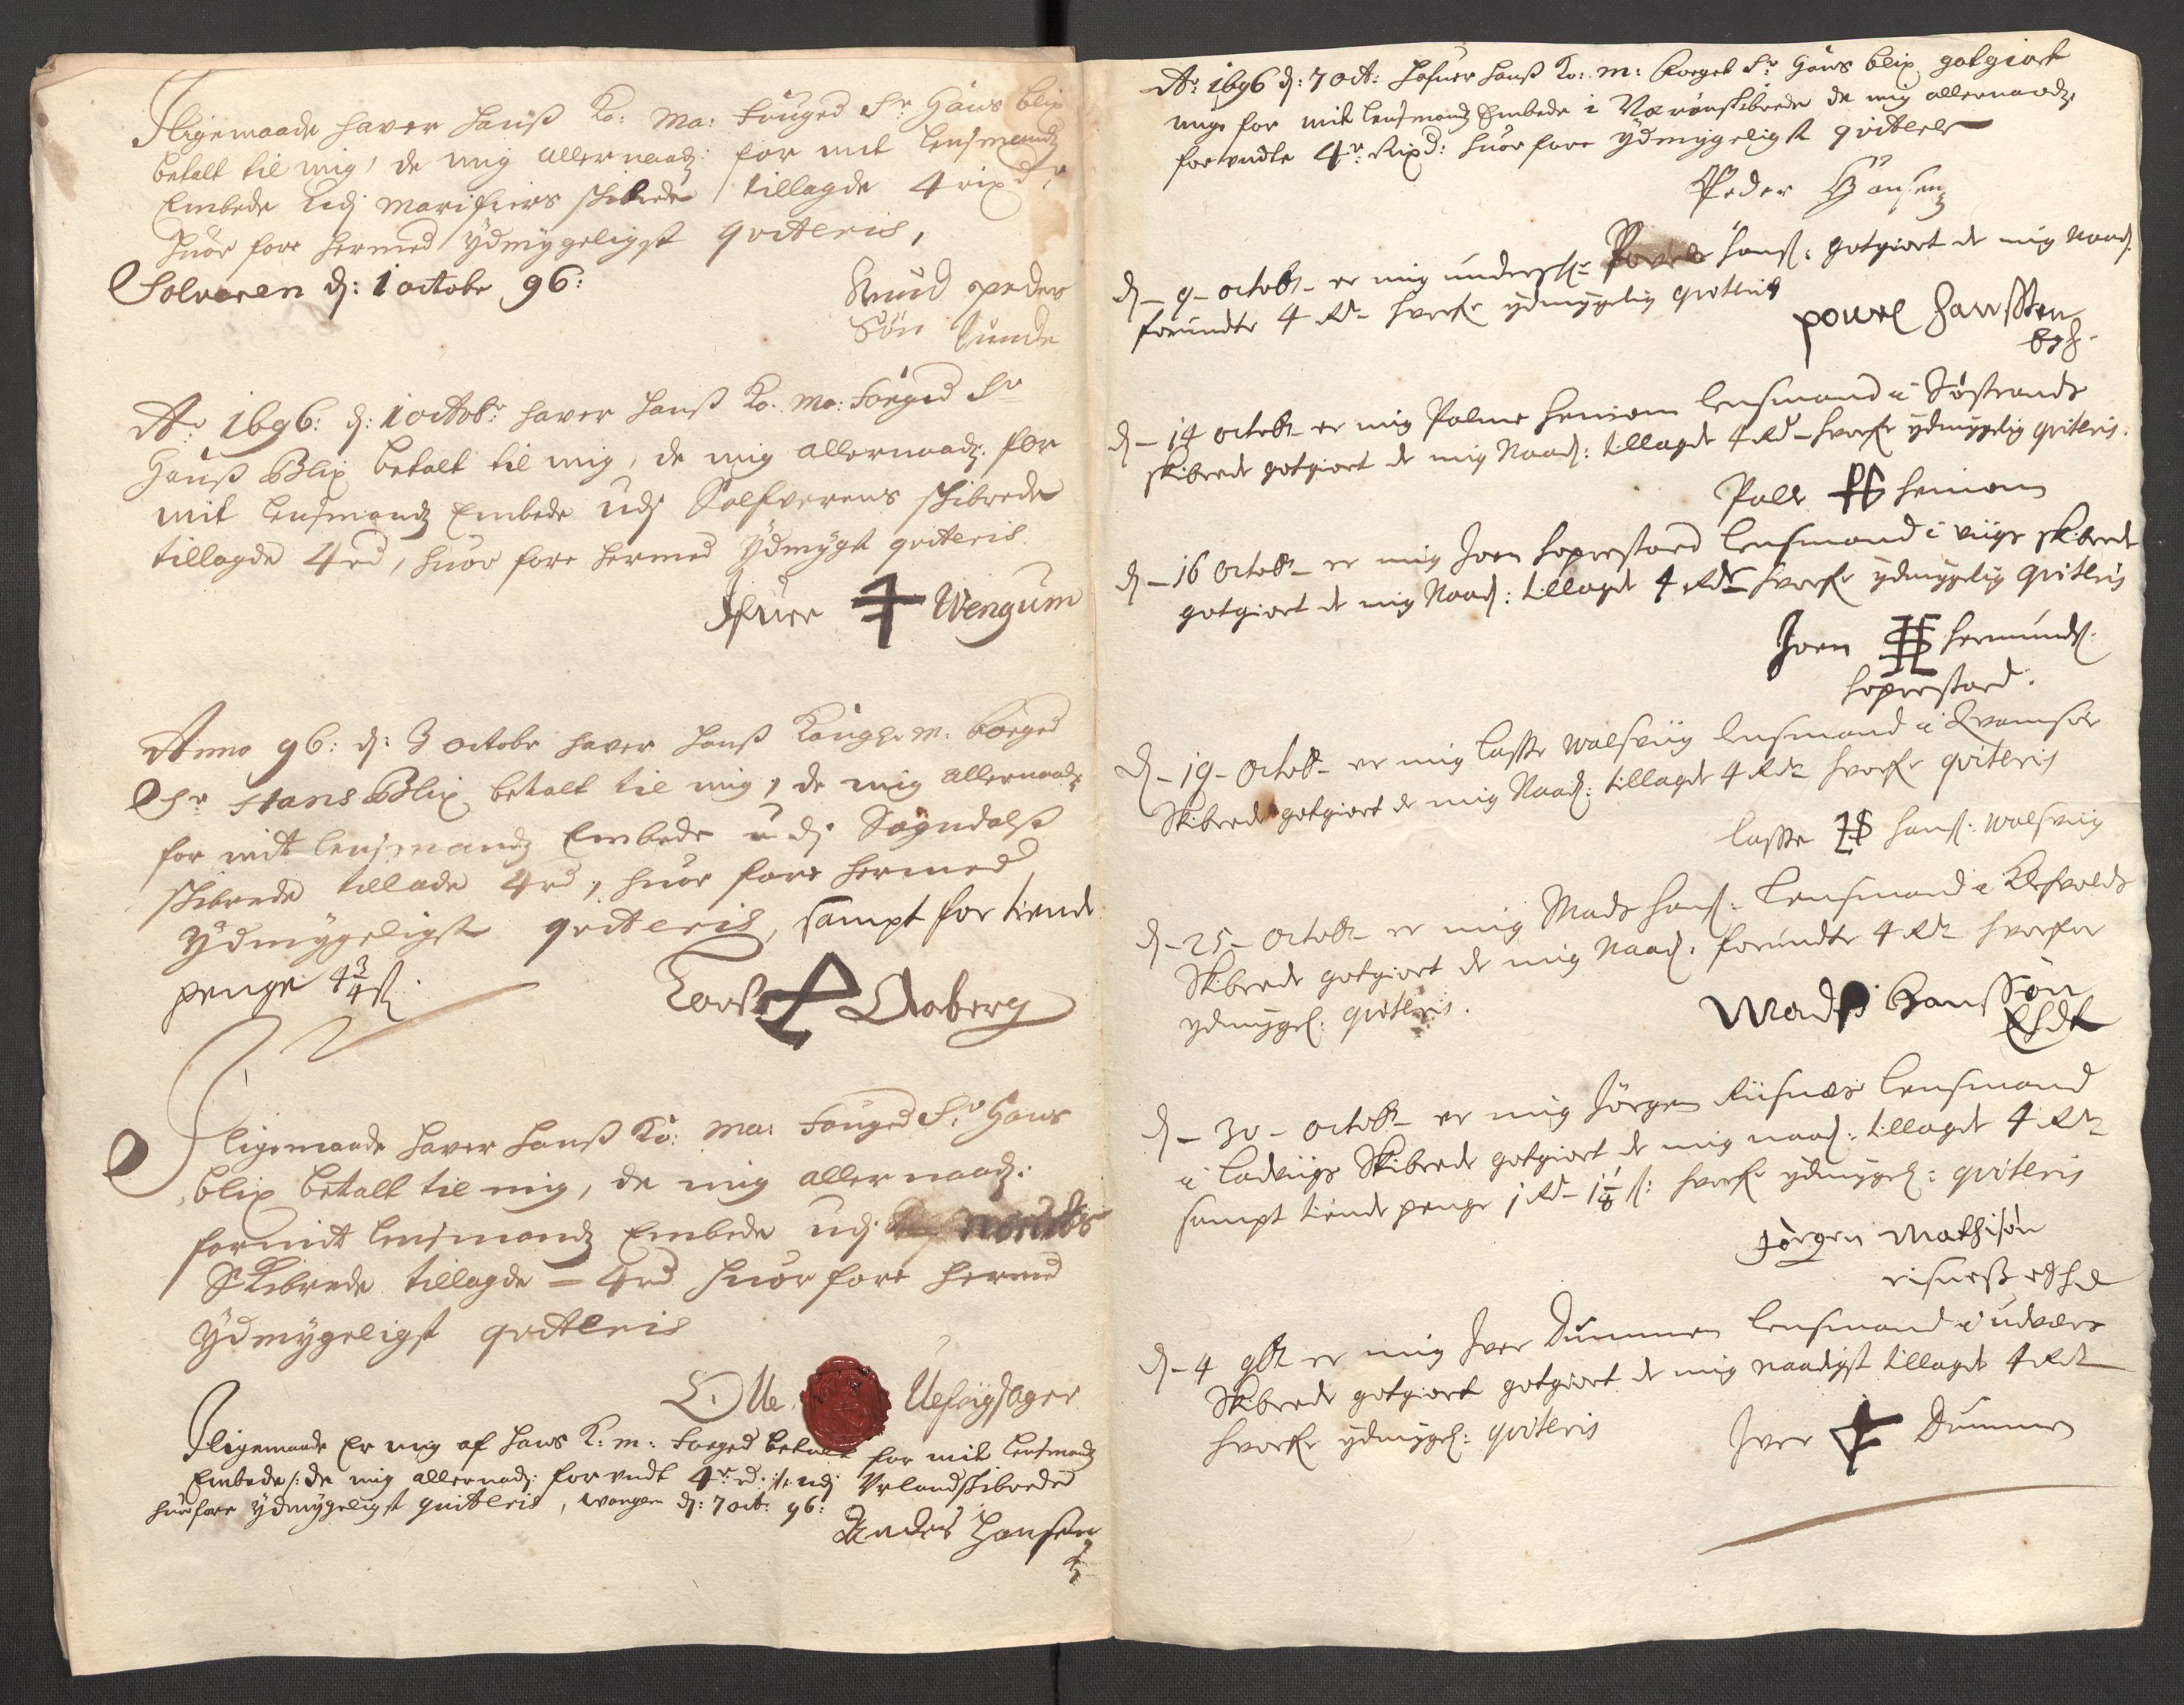 Iligemaade haver hanß Ko: Ma: Fouged Sr Hans Blix
betalt til mig, de mig allernaadg: for mit lensmandz
Embede udj Marifiers skibrede tillagde 4 rixdr
huor fore hermed ydmygeligst qvitteris,
Solvoren d: 1 octobr 96:
Knud peder
Søn Lunde
Ao 1696: d: 1 octobr haver hanß Ko. Ma: Foiged Sr
Hanß Blix betalt til mig, de mig allernaadg. for
mit lensmandz Embede udj Solfverens skibrede
tillagde 4 rd, huor fore hermed ydmygst qvitteris
Ifuer Wengum
Anno 96: d: 3 octobr haver hanß Konggl: M: foeged
Sr Hans Blix betalt til mig, de mig allernaadr
for mit lensmandz Embede udj Sogndalß
skibrede tillade 4 rd, huor fore hermed
ydmygeligst qvitteris, sampt for tiende
penge 4 3/4 ß.
Torß Aaberg
Iligemaade haver hanß Ko: Ma: Fouged Sr Hans
blix betalt til mig, de mig allernaadg:
for mit lensmandz Embede udj Norums
Skibrede tillagde - 4 rd huor fore hermed
ydmygeligst qvitteris
Olle Uefrigsager
Iligemaade Er mig af hans K: M: Foeged betalt for mit lensmandz
Embede /: de mig allernadg: forundt 4r rd :/ udj Urlandskibrede
huorfore ydmygeligst quitteris, Wangen d: 7 oct: 96:
Anders Hansen
Ao: 1696 d: 7 oct: hafuer hanß Ko: M: Foeget Sr Hans blix gotgiort
mig for mit lensmandz Embede i Nærøenskibrede de mig allernaadz
forundte 4r: Rixd: huorfore ydmygeligst qvitteler
Peder Hansen
d - 9 - octobr - er mig underskr Povel Hanß: gotgiort de mig Naad:
forundte 4 Rdr hvorfr ydmygelig qvitteris
powel Hansßen
d - 14 octobr er mig Palme Heniom lensmand i Søstrands
skibrede gotgiort de mig Naad: tillagde 4 Rd - hvorfr ydmygelig qviteris.
Palle PH heniom
d - 16 Octobr - er mig Joen hoprestad lensmand i viigs skibrede
gotgiort de mig Naad: tillagde 4 Rdr hvorfr ydmygelig qvitteris
Joen IHS hermunds:
hoprestad.
d - 19 - Octobr er mig Lasse walsviig lensmand i Kvamsøe
Skibrede gotgiort de mig Naad: tillagde 4 Rdr hvorfr qvitteris
Lasse LHS hanß: walsviig
d - 25 - Octobr er mig Mads hanß: Lensmand i Klefvolds
Skibrede gotgiort de mig Naad: forundte 4 Rdr hvorfor
ydmygel: qvitteris.
Madß Hansßøn
EhdL
d - 30 - octobr er mig Jørgen Riisnes lensmand
i Ladviigs Skibrede gotgiort de mig naad: tillagde 4 Rdr
sampt tiende penge 1 Rd - 1 1/8 ß: hvorfr ydmygel: qvitteris
Jørgen Mathisøn
risneß
d - 4 9br er mig Iver Dummen lensmand i Udvær
Skibrede gotgiort gotgiort de mig naadigst tillagde 4 Rdr
hvorfr ydmygel: qvitteris
Iver Dummen